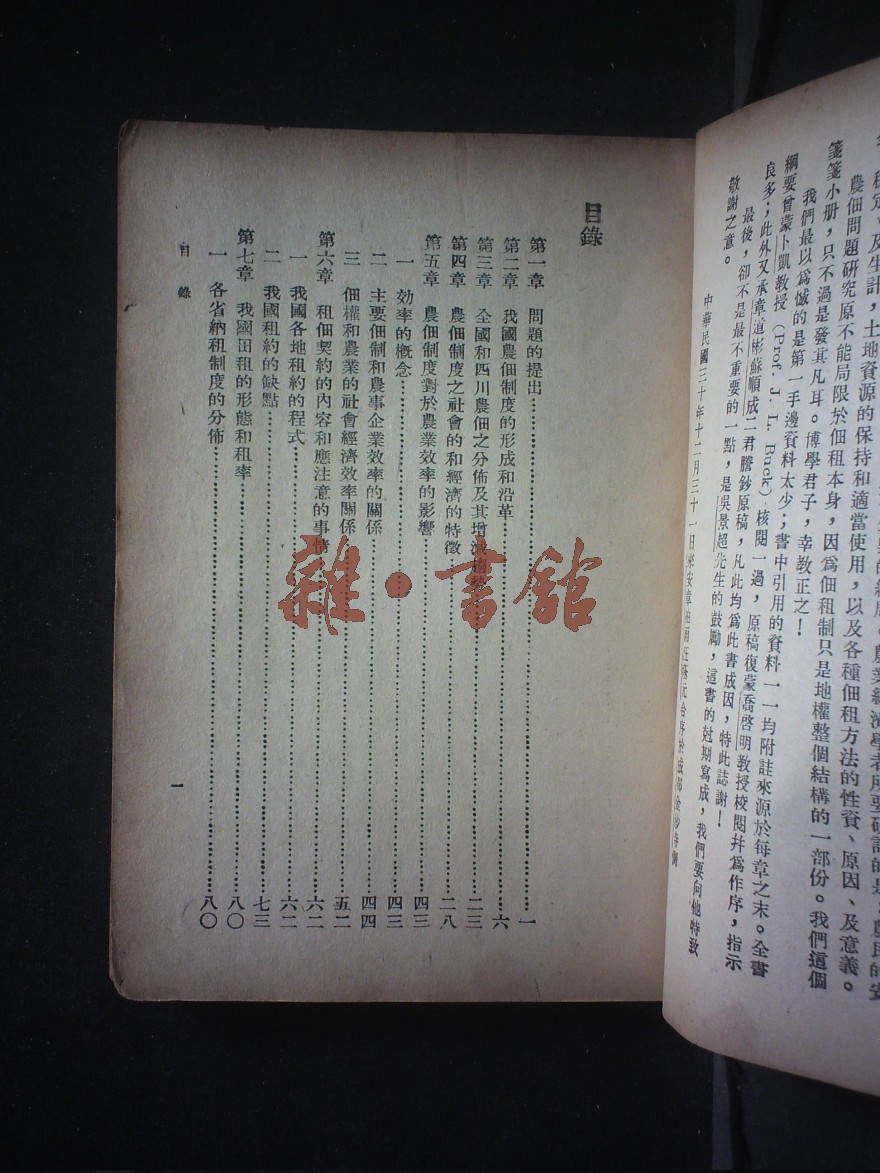 穩定、及生計，土地資源的保持和適當使用，以及各種佃租方法的性質、原因、及意義。
農佃問題研究原不能局限於佃租本身，因爲佃租制只是地權整個結構的一部份。我們這個
箋箋小册，只不過是發其凡耳。博學君子，幸教正之！
我們最以爲憾的是第一手邊資料太少；書中引用的資料一一均附註來源於每章之末。全書
綱要曾蒙卜凱教授（Prof. J. L. Buck）核閱一過，原稿復蒙喬啓明教授校閱幷爲作序，指示
良多；此外又承章道彬蘇順成二君謄鈔原稿，凡此均爲此書成因，特此誌謝！
最後，卻不是最不重要的一點，是吳景超先生的鼓勵，這書的尅期寫成，我們要向他特致
敬謝之意。
中華民國三十年十二月三十一日
目錄
第一章　問題的提出…………一
第二章　我國農佃制度的形成和沿革…………六
第三章　全國和四川農佃之分佈及其增減…………二三
第四章　農佃制度之社會的和經濟的特徵…………二八
第五章　農佃制度對於農業效率的影響…………四三
一　效率的概念…………四三
二　主要佃制和農事企業效率的關係…………四四
三　佃權和農業的社會經濟效率關係…………五二
第六章　租佃契約的內容和應注意的事情…………六二
一　我國各地租約的程式…………六二
二　我國租約的缺點…………七三
第七章　我國田租的形態和租率…………八〇
一　各省納租制度的分佈…………八〇
目錄
一
雜·書館